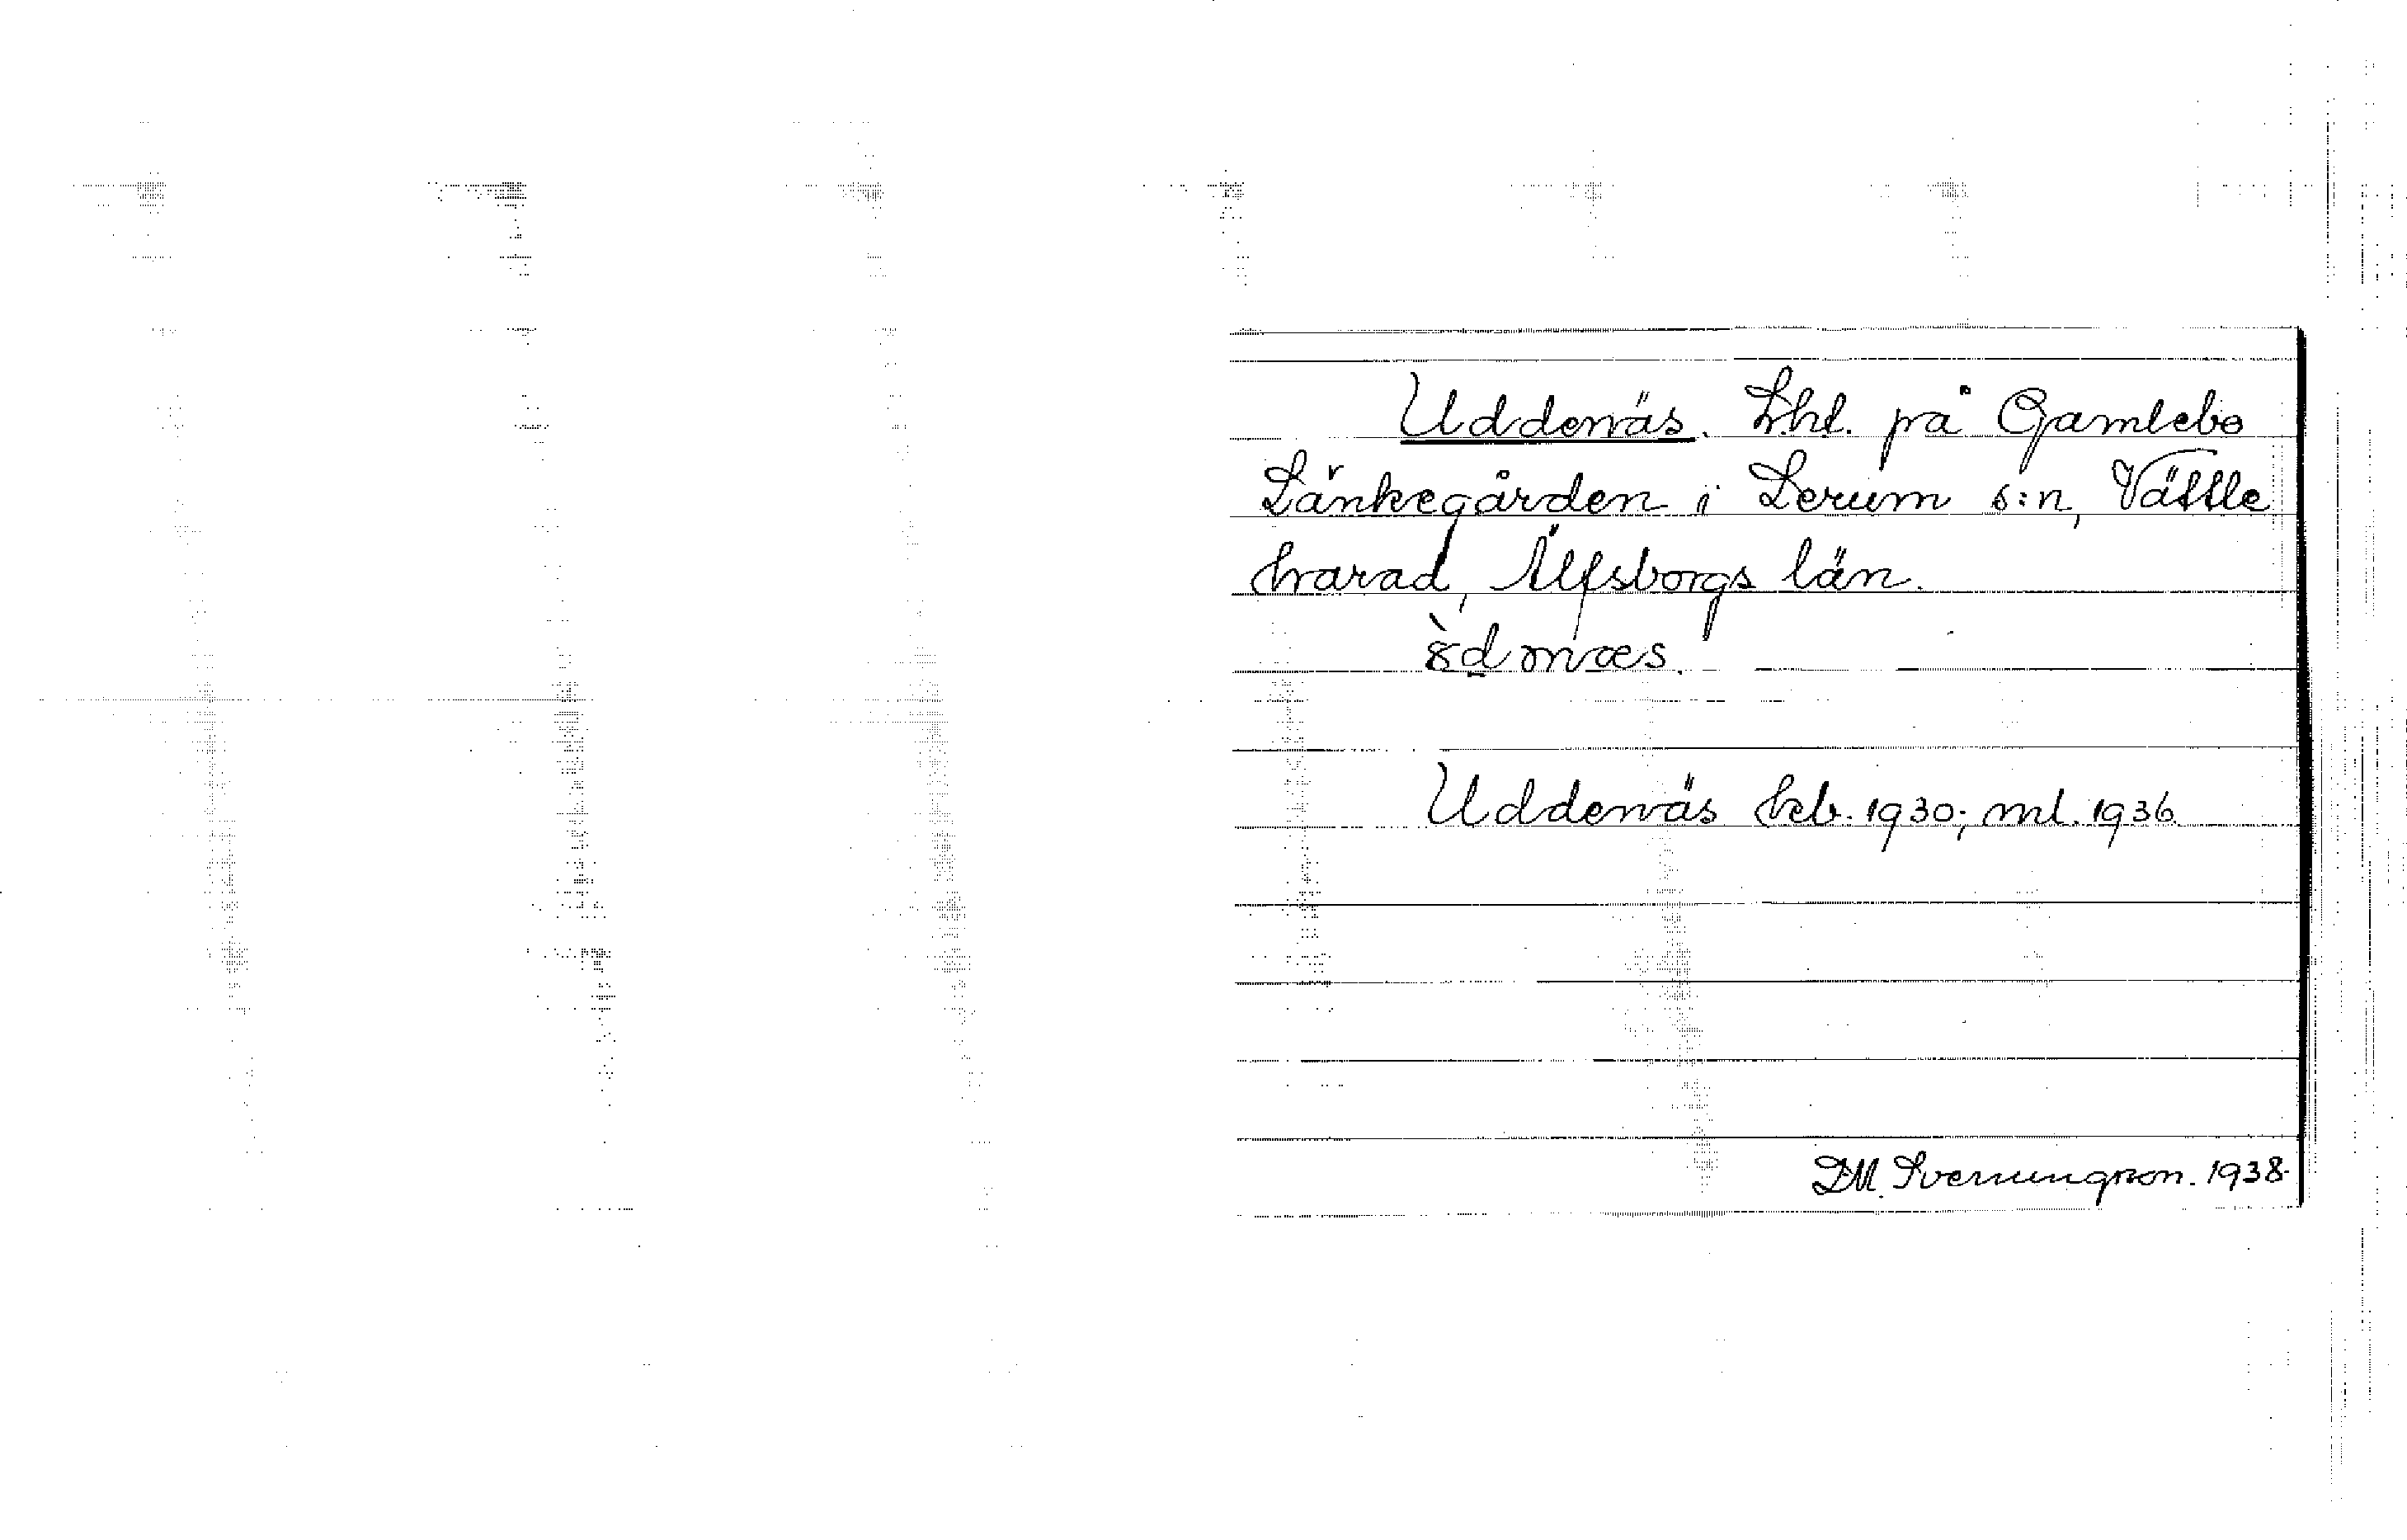 Uddenäs. Lht. på Gamlebo
Länkegården i Lerum s:n, Vättle
harad, Älfsborgs län.
Uddenäs heb. 1930; ml. 1936.
DM. Svenungsson. 1938.